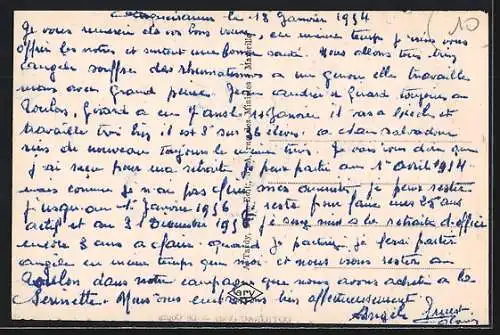 le 18 Janvier 1954
Je vous remercie de vos bons vœux, en même temps je viens vous
offrir les notres et surtout une bonne santé. Nous allons très bien
Angèle souffre des rhumatismes a un genou elle travaille
mais avec grand peine. et Gérard toujours a
Toulon, Gérard a eu 7 ans le 11 Janvier il va a l'école et
travaille très bien il est 3e sur 36 élèves. a chan salvadour
rien de nouveau toujours le même train. Je vais vous dire que
j'ai reçu pour ma retraite. Je peux partir au 1er avril 1954
mais comme je n'ai pas fini mes années, je peux rester
jusqu'au 1er Janvier 1956 reste pour faire mes 35 ans
actif et au 31 Décembre 195 je serai mis a la retraite d'office
encore 3 ans a faire. quand je partirai, je ferai partir
Angèle en même temps que moi et nous irons rester a
Toulon dans notre campagne que nous avons acheté a la
Serinette. Nous vous embrassons bien affectueusement
Angèle Ernest
10
Tardy, Édit., 12, Rue des Minimes, Marseille